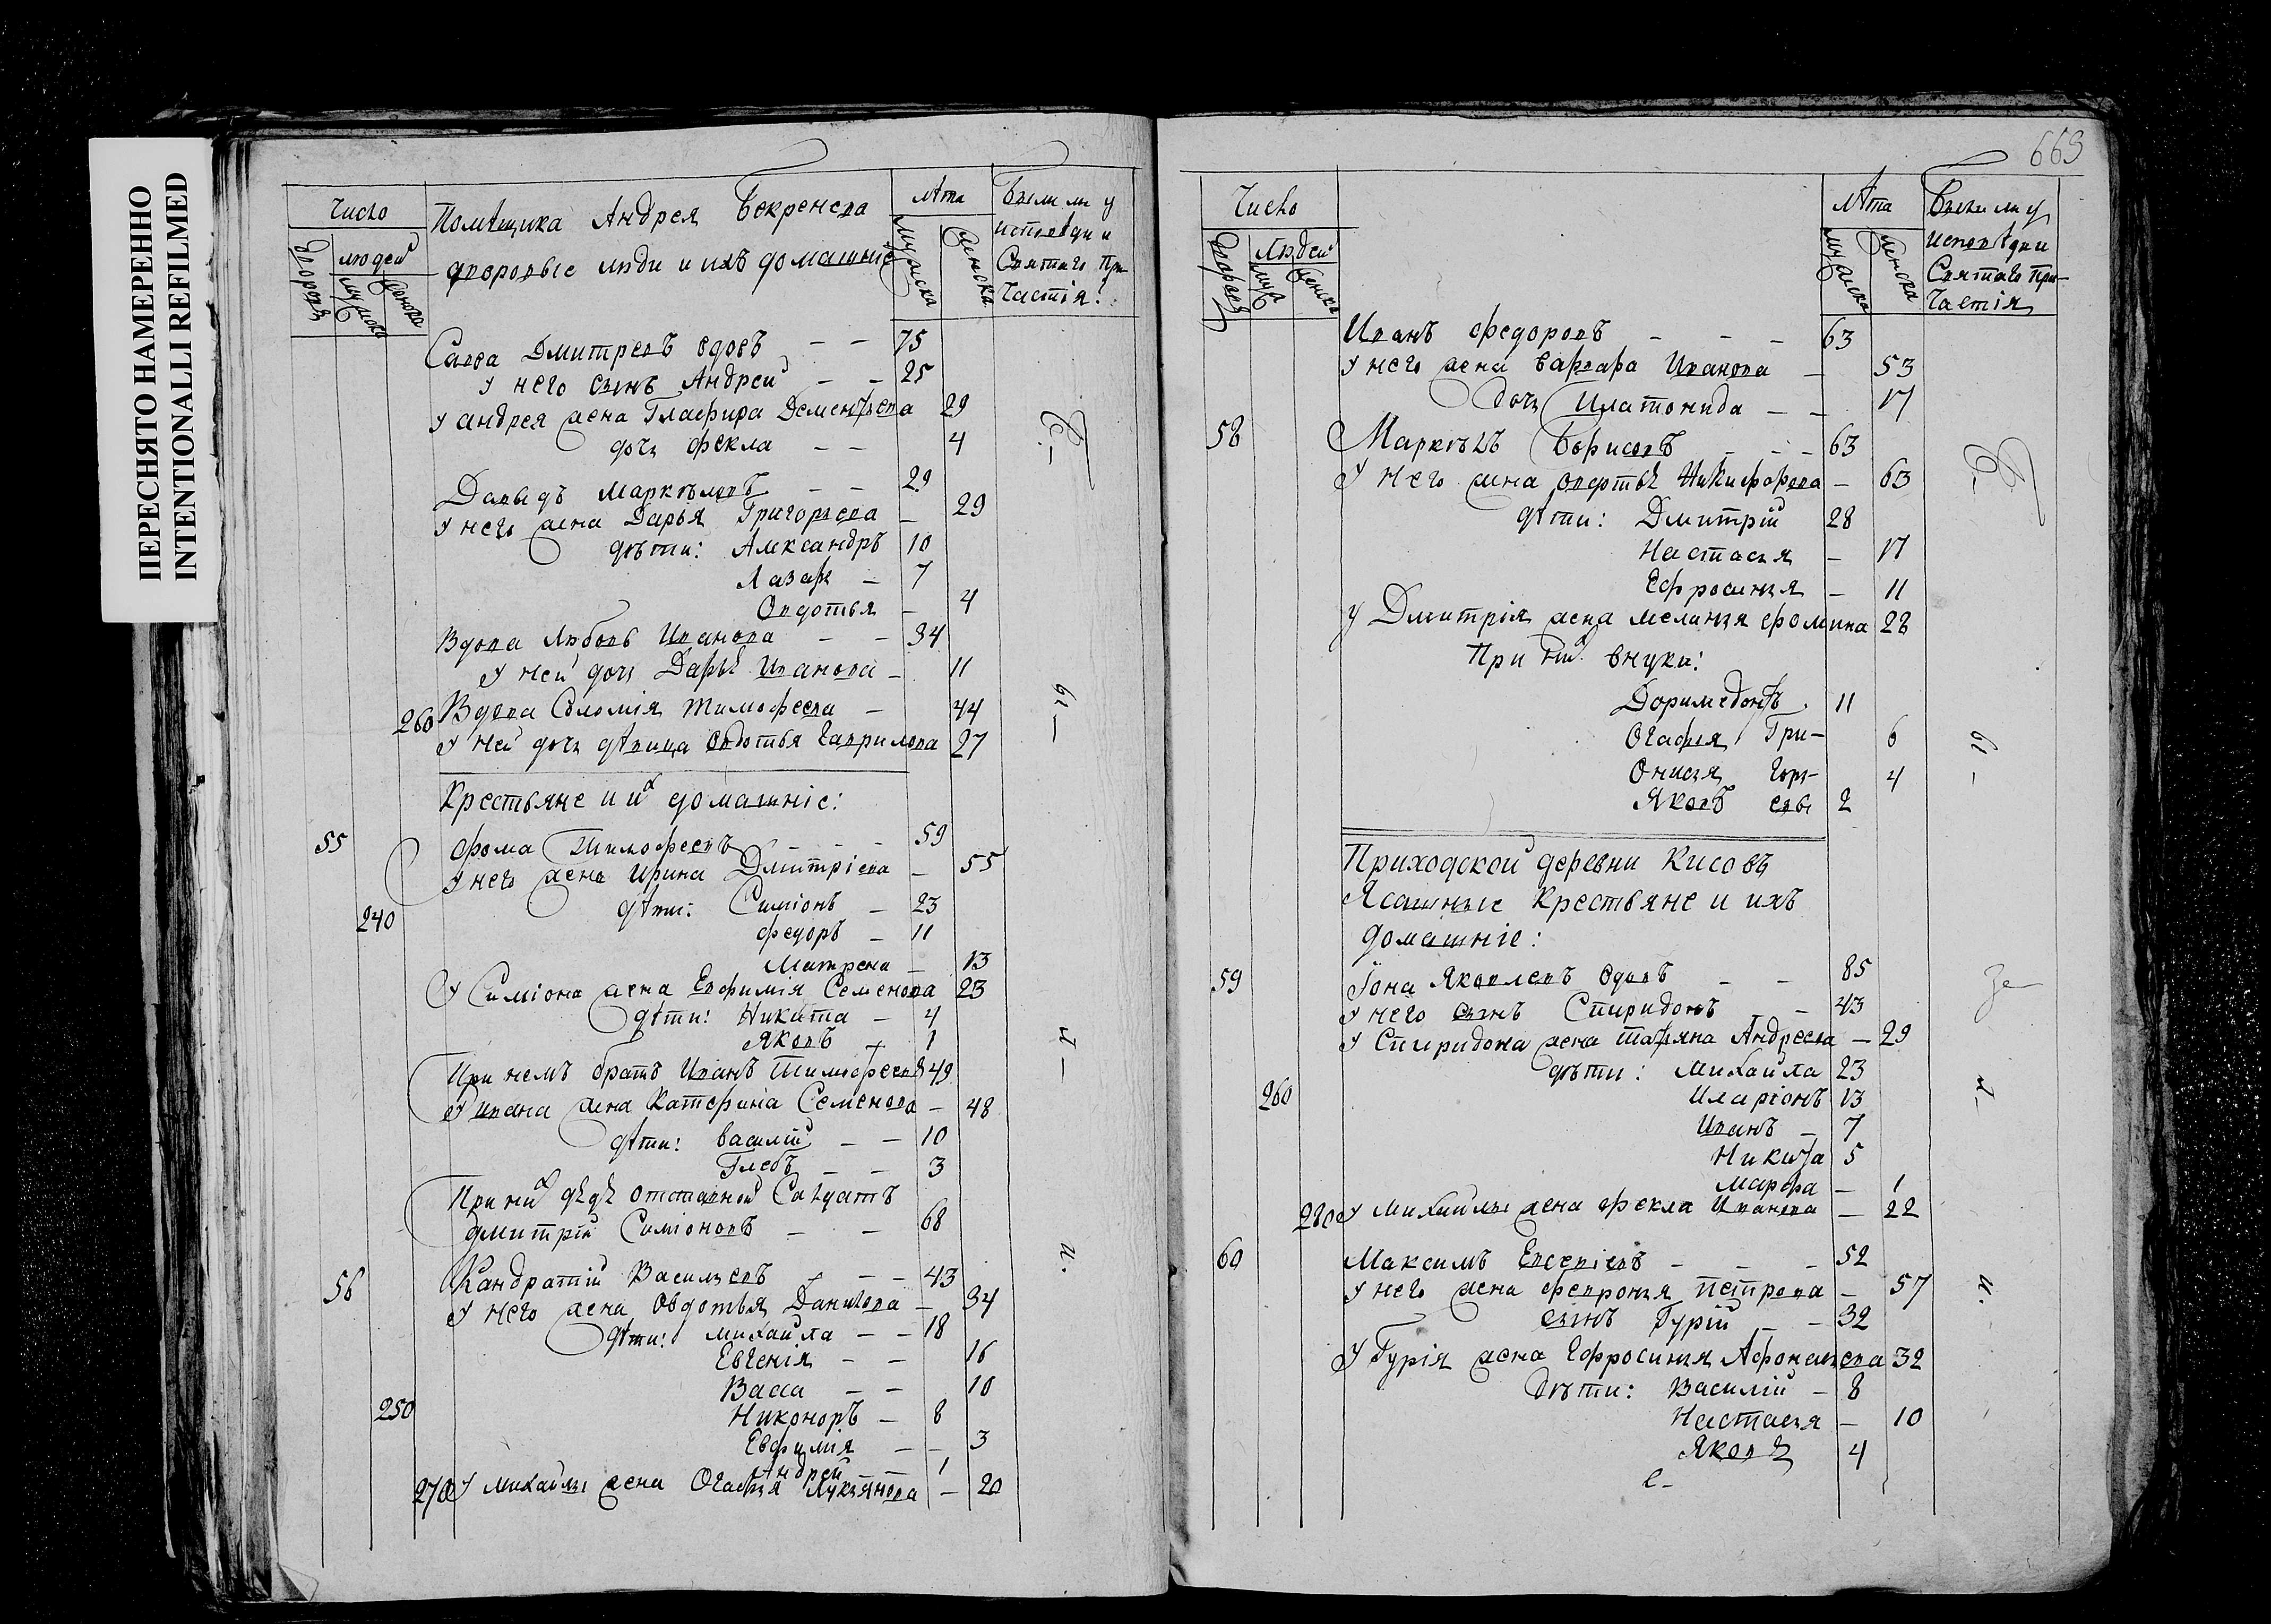 ПЕРЕСНЯТО НАМЕРЕННО
INTENTIONALLI REFILMED
Число
дворовъ
людей
мужска
женска
Помѣщика Андрея Бекренева
дворовые люди и ихъ домашніе
лѣта
мужска
женска
Были ли у
исповѣди и
Святаго При-
частія:
Савва Дмитревъ вдовъ — — 75
У него сынъ Андрей — — 25
У андрея жена Глафира Дементьева 29
дочь Фекла — — 4
Давыдъ Маркѣловъ — — 29
У него жена Дарья Григорьева — 29
дѣти: Александръ 10
Лазарь — 7
Овдотья — 4
Вдова Любовь Иванова — — 34
У ней дочь Дарья Иванова — 11
260 Вдова Соломія Тимофеева — 44
У ней дочь дѣвица Овдотья Гаврилова 27
Крестьяне и их домашніе:
55 Фома Тимофеевъ — — — 59
У него жена Ирина Дмитріева — 55
дѣти: Симіонъ — 23
240 Федоръ — 11
Матрена — 13
У Симіона жена Евфимія Семенова 23
дѣти: Никита — 4
Яковъ — 1
При немъ братъ Иванъ Тимофеевъ 49
У ивана жена Катерина Семенова — 48
дѣти: василій — — 10
Глебъ — — 3
При них дѣдъ отставной Салдатъ
Дмитрій Симіоновъ — — 68
56 Кандратій Васильевъ — — — 43
У него жена Овдотья Данилова — 34
дѣти: михайла — — 18
Евгенія — — 16
Васса — — 10
250 Никоноръ — 8
Евфимія — — 3
Андрей 1
270 У михайлы жена Огафья Лукьянова — 20
663
Число
дворовъ
Людей
муж
женска
лѣта
мужска
женска
Были ли у
исповѣди и
Святаго При-
частія
Иванъ Федоровъ — — — 63
У него жена варвара Иванова — 53
дочь Платонида — — 17
58 Маркелъ Борисовъ — — — 63
У него жена Овдотья Никифорова — 63
дѣти: Дмитрій 28
Настасья — 17
Ефросинья — 11
У Дмитрія жена меланья фомина 28
При них внуки:
Доримедонтъ 11
Огафья Гри- 6
Онисья горь- 4
Яковъ евы 2
Приходской деревни Кисовъ
Ясашные Крестьяне и ихъ
домашніе:
59 Іона Яковлевъ вдовъ — — 85
У него сынъ Спиридонъ — 43
У Спиридона жена татьяна Андреева — 29
дѣти: михайла 23
260 Иларіонъ 13
Иванъ — 7
Никита 5
Марфа — 1
280 У михайлы жена фекла Иванова — 22
60 Максимъ Евсевіевъ — — — 52
У него жена февронья петрова — 57
сынъ Гурій — — 32
У Гурія жена Ефросинья Афонасьева 32
дѣти: Василій — 8
Настасья — 10
Яковъ 4